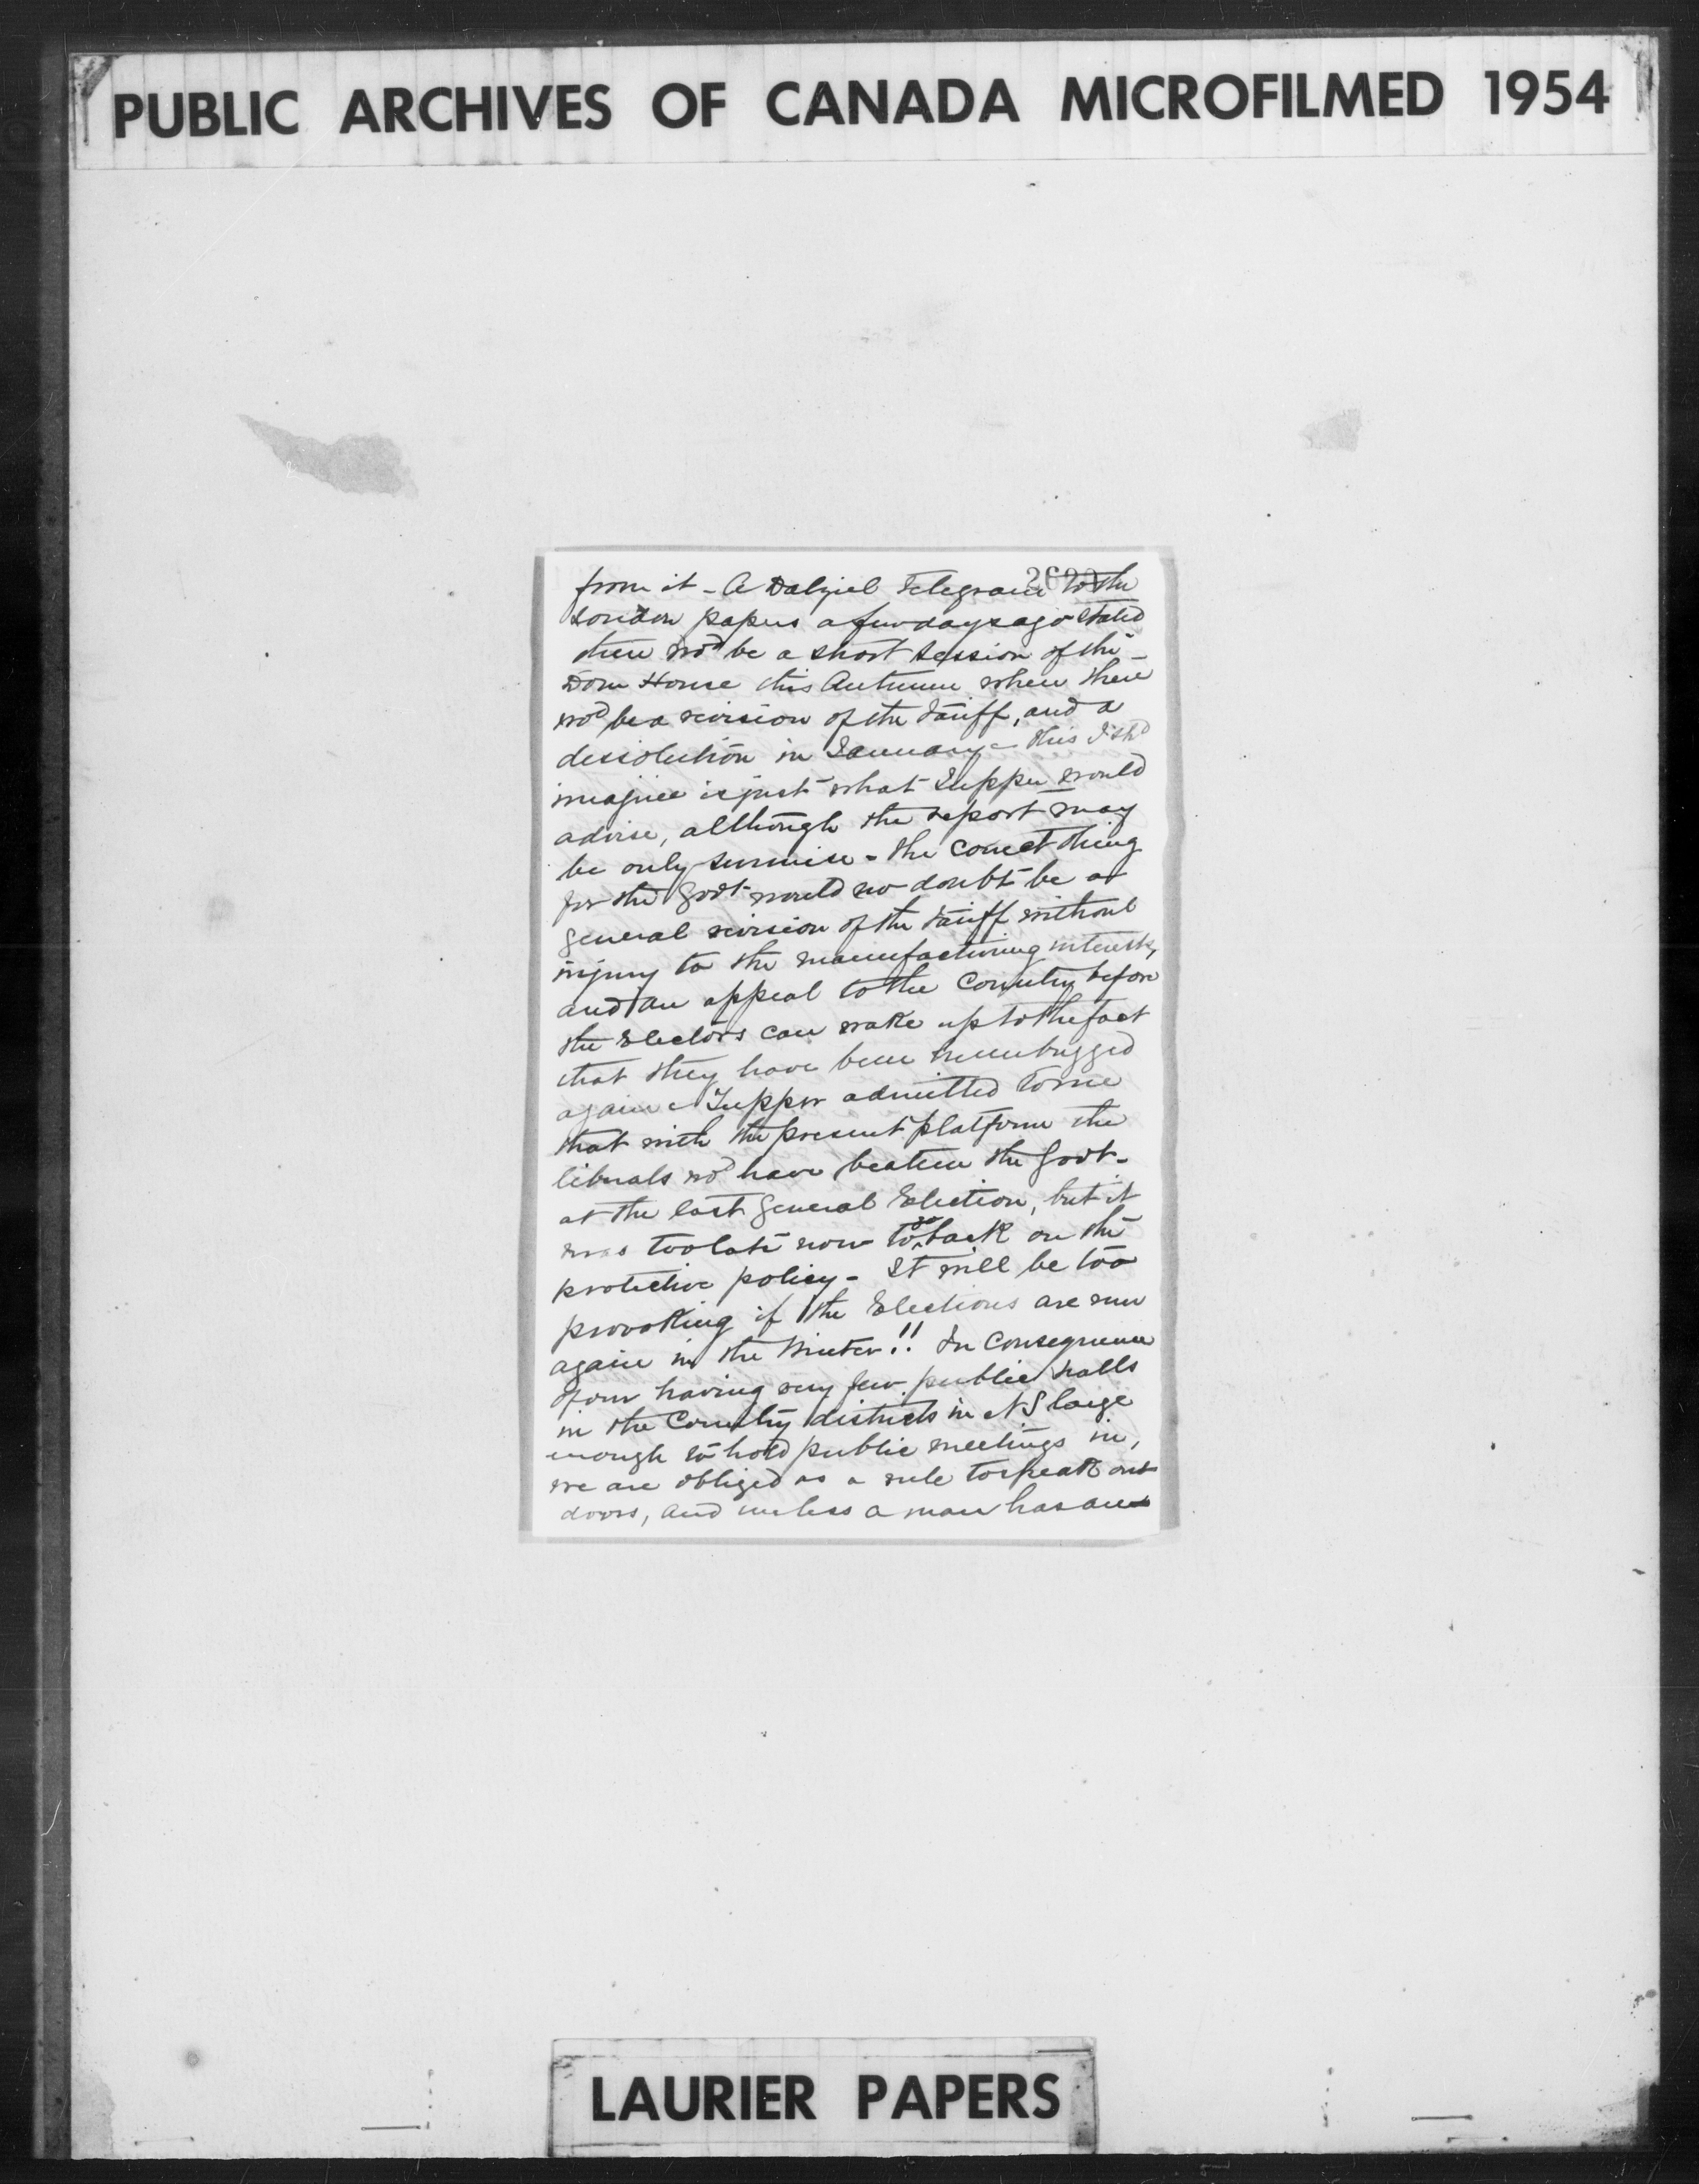 PUBLIC ARCHIVES OF CANADA MICROFILMED 1954
from it - A Dalziel Telegram to the
London papers a few days ago stated
there wod be a short session of the
Dom House this Autumn when there
wod be a revision of the tariff, and a
dissolution in January - this I shd
imagine is just what Tupper would
advise, although the report may
be only surmise - the correct thing
for the Govt would no doubt be a
general revision of the tariff without
injury to the manufacturing interests,
and an appeal to the Country before
the Electors can wake up to the fact
that they have been humbugged
again - Tupper admitted to me
that with the present platform the
liberals wd have beaten the Govt -
at the last General Election, but it
was too late now to go back on the
protective policy - It will be too
provoking if the Elections are run
again in the Winter!! In Consequence
of our having very few public halls
in the Country districts in N S large
enough to hold public meetings in,
we are obliged as a rule to speak out
doors, and unless a man has an
LAURIER PAPERS